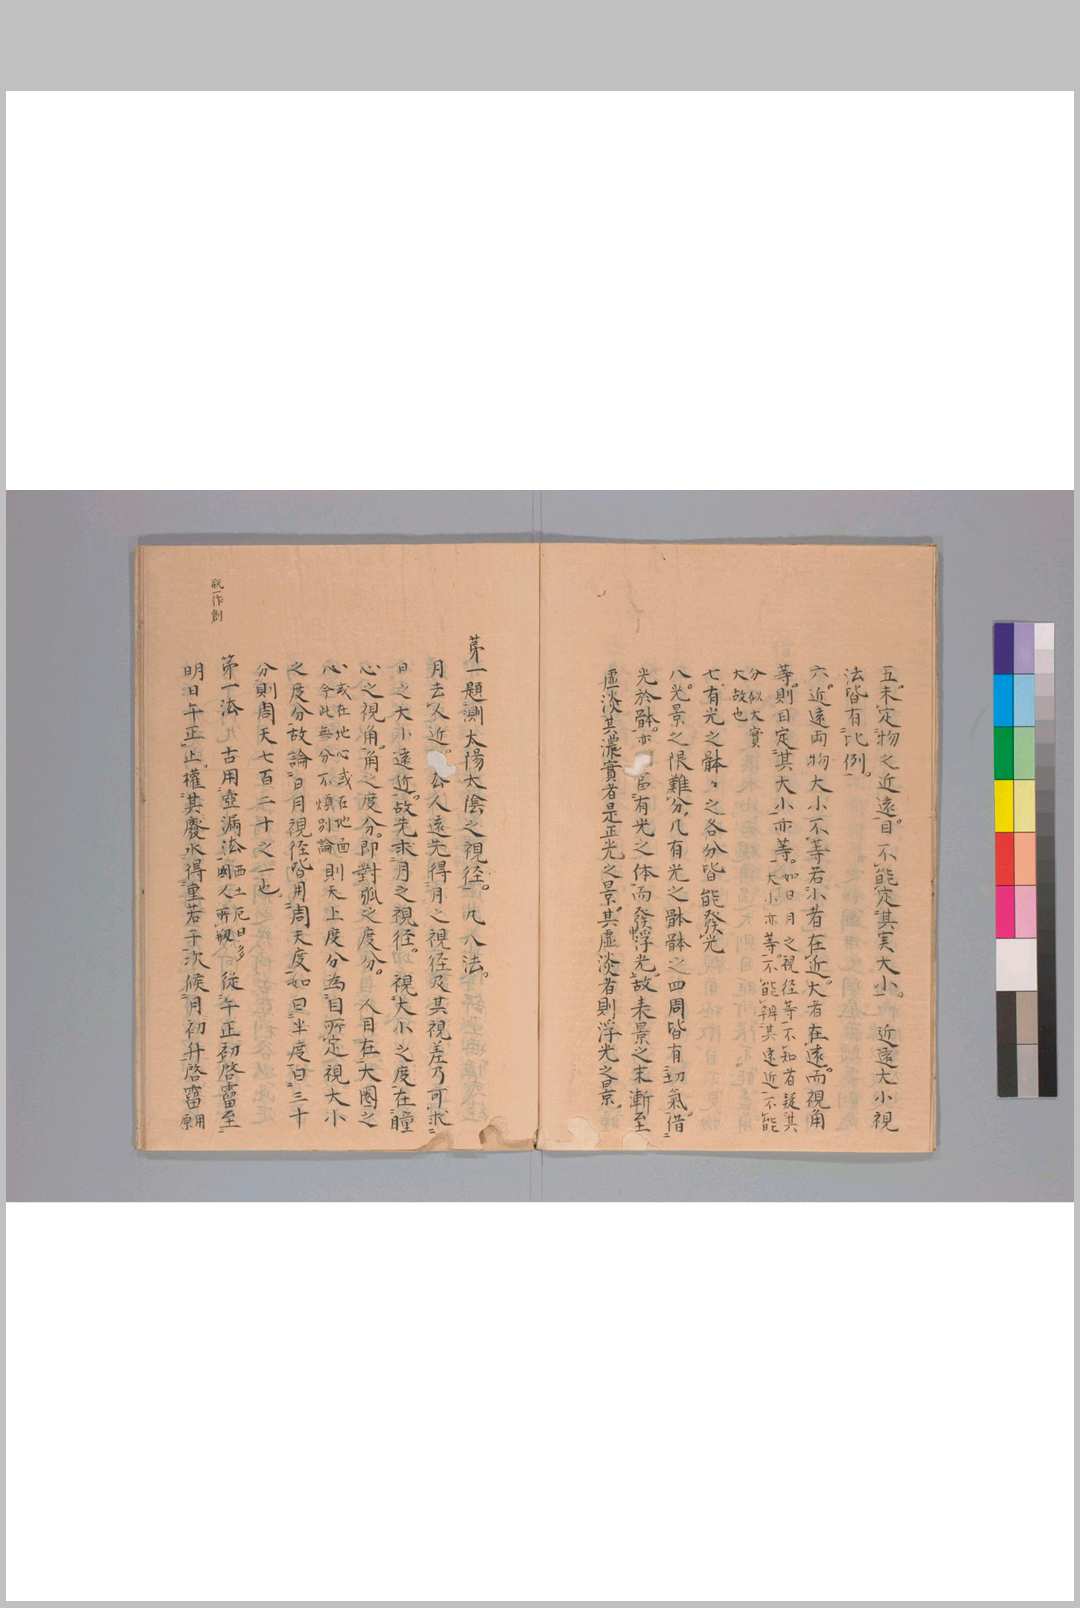 五未定物之近遠目不能定其実大小近遠大小視
法皆有比例
六近遠両物大小不等若小者在近大者在遠而視角
等則目定其大小亦等如日月之視径等不知者疑其
大小亦等不能辨其遠近不能
分似大實
大故也
七有光之躰々之各分皆能發光
八光景之限難分凡有光之躰躰之四周皆有切氣借
光於躰亦 有光之体而發浮光故表景之末漸至
虛淡其濃實者是正光之景其虛淡者則浮光之景
第一題測太陽太陰之視径凡八法
月去人近 去人遠先得月之視径及其視差乃可求
日之大小遠近故先求月之視径視大小之度在瞳
心之視角角之度分即對弧之度分人目在大圏之
心或在地心或在地面
今此無分不煩別論則天上度分為目所定視大小
之度分故論日月視径皆用周天度如曰半度曰三十
分則周天七百二十之一也
第一法 古用壺漏法西土厄日多
國人所觀從午正初啓霤至
明日午正止權其廢水得重若干次候月初升啓霤用
原
觀一作創